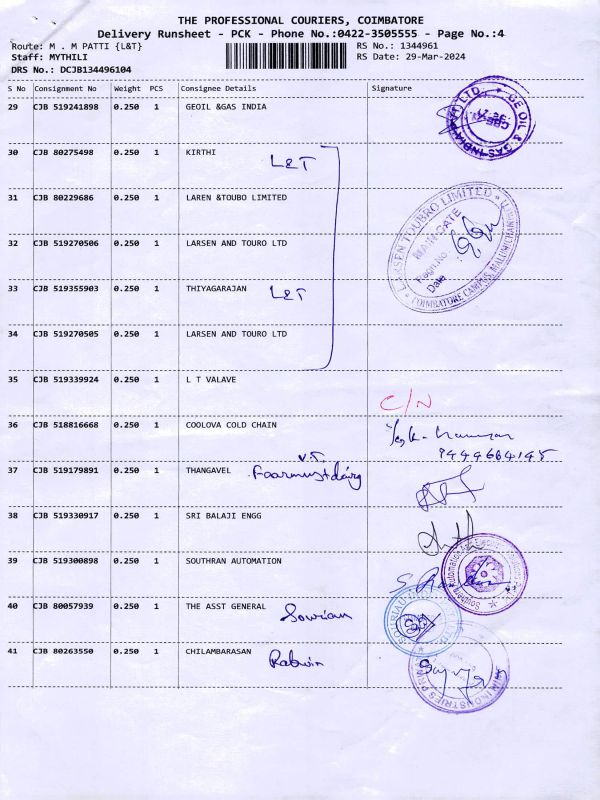 THE PROFESSIONAL COURIERS, COIMBATORE
Delivery Runsheet - PCK - Phone No.:0422-3505555 - Page No.:4
Route: M . M PATTI {L&T}
RS No.: 1344961
Staff: MYTHILI
RS Date: 29-Mar-2024
DRS No.: DCJB134496104
S No Consignment No Weight PCS Consignee Details Signature
29 CJB 519241898 0.250 1 GEOIL &GAS INDIA
GE OIL & GAS INDIA PVT LTD.
30 CJB 80275498 0.250 1 KIRTHI
L&T
31 CJB 80229686 0.250 1 LAREN &TOUBO LIMITED
LARSEN TOUBRO LIMITED
MAIN GATE
Regn.No
Date
COIMBATORE CAMPUS,
32 CJB 519270506 0.250 1 LARSEN AND TOURO LTD
33 CJB 519355903 0.250 1 THIYAGARAJAN L&T
34 CJB 519270505 0.250 1 LARSEN AND TOURO LTD
35 CJB 519339924 0.250 1 L T VALAVE
C/N
36 CJB 518816668 0.250 1 COOLOVA COLD CHAIN
37 CJB 519179891 0.250 1 THANGAVEL
38 CJB 519330917 0.250 1 SRI BALAJI ENGG
39 CJB 519300898 0.250 1 SOUTHRAN AUTOMATION
40 CJB 80057939 0.250 1 THE ASST GENERAL
41 CJB 80263550 0.250 1 CHILAMBARASAN